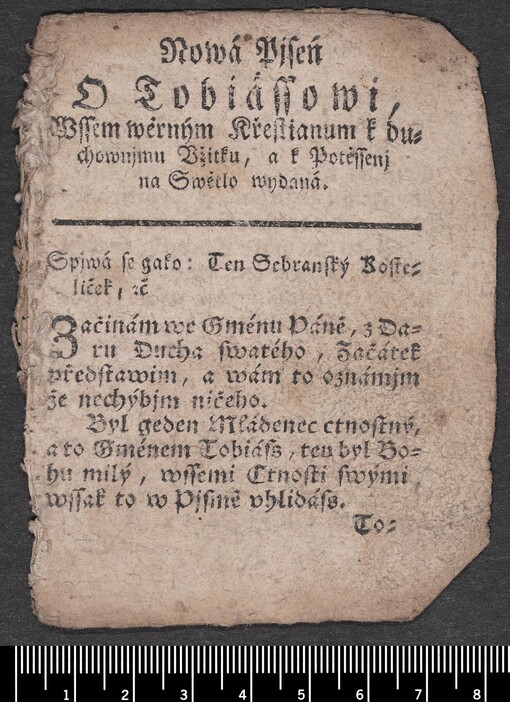 Nowá Pjseň
O Tobiássowi,
Wssem wěrným Křestianum k du-
chownjmu Vžitku, a k Potěssenj
na Swětlo wydaná.
Spjwá se gako: Ten Sebranský Koste-
ljček, ꝛč
Začinám we Gménu Páně, z Da-
ru Ducha swatého, Začátek
předstawim, a wám to oznámjm
že nechýbjm ničeho.
Byl geden Mládenec ctnostný,
a to Gménem Tobiáss, ten byl Bo-
hu milý, wssemi Ctnosti swými
wssak to w Pjsmě vhlidáss.
To-
1 2 3 4 5 6 7 8